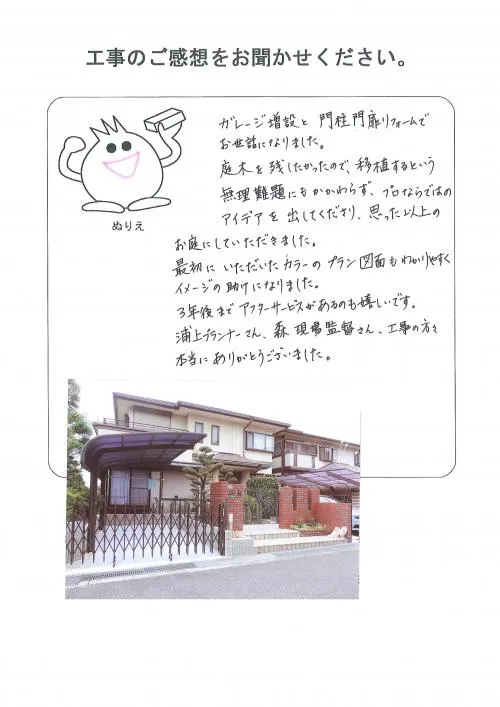 工事のご感想をお聞かせください。
ぬりえ
ガレージ増設と 門柱門扉リフォームで
お世話になりました。
庭木を残したかったので、移植するという
無理難題にもかかわらず、プロならではの
アイデアを出してくださり、思った以上の
お庭にしていただきました。
最初にいただいたカラーのプラン図面もわかりやすく
イメージの助けになりました。
3年後までアフターサービスがあるのも嬉しいです。
浦上プランナーさん、森現場監督さん、工事の方々
本当にありがとうございました。